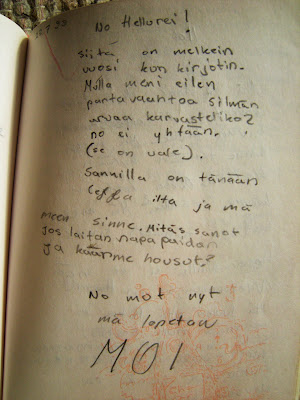 15.7.99
No Hellurei!
siitä on melkein
vuosi kun kirjotin.
Mulla meni eilen
partavaahtoa silmän
arvaa karvasteliko?
no ei yhtään.
(se on vale).
Sannilla on tänään
leffa ilta ja mä
meen sinne. Mitäs sanot
jos laitan napapaidan
ja käärme housut?
No mut nyt
mä lopetan
MOI